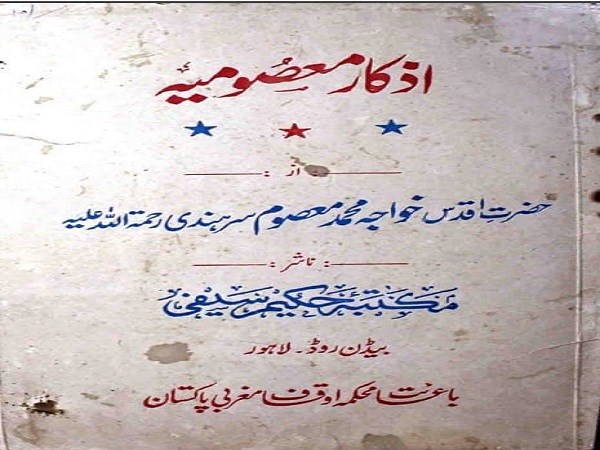 اذکار معصومیہ
از :
حضرت اقدس خواجہ محمد معصوم سرہندی رحمۃ اللہ علیہ
ناشر :
مکتبۂ حکیم سیفی
بیڈن روڈ ۔ لاہور
باعانت محکمہ اوقاف مغربی پاکستان